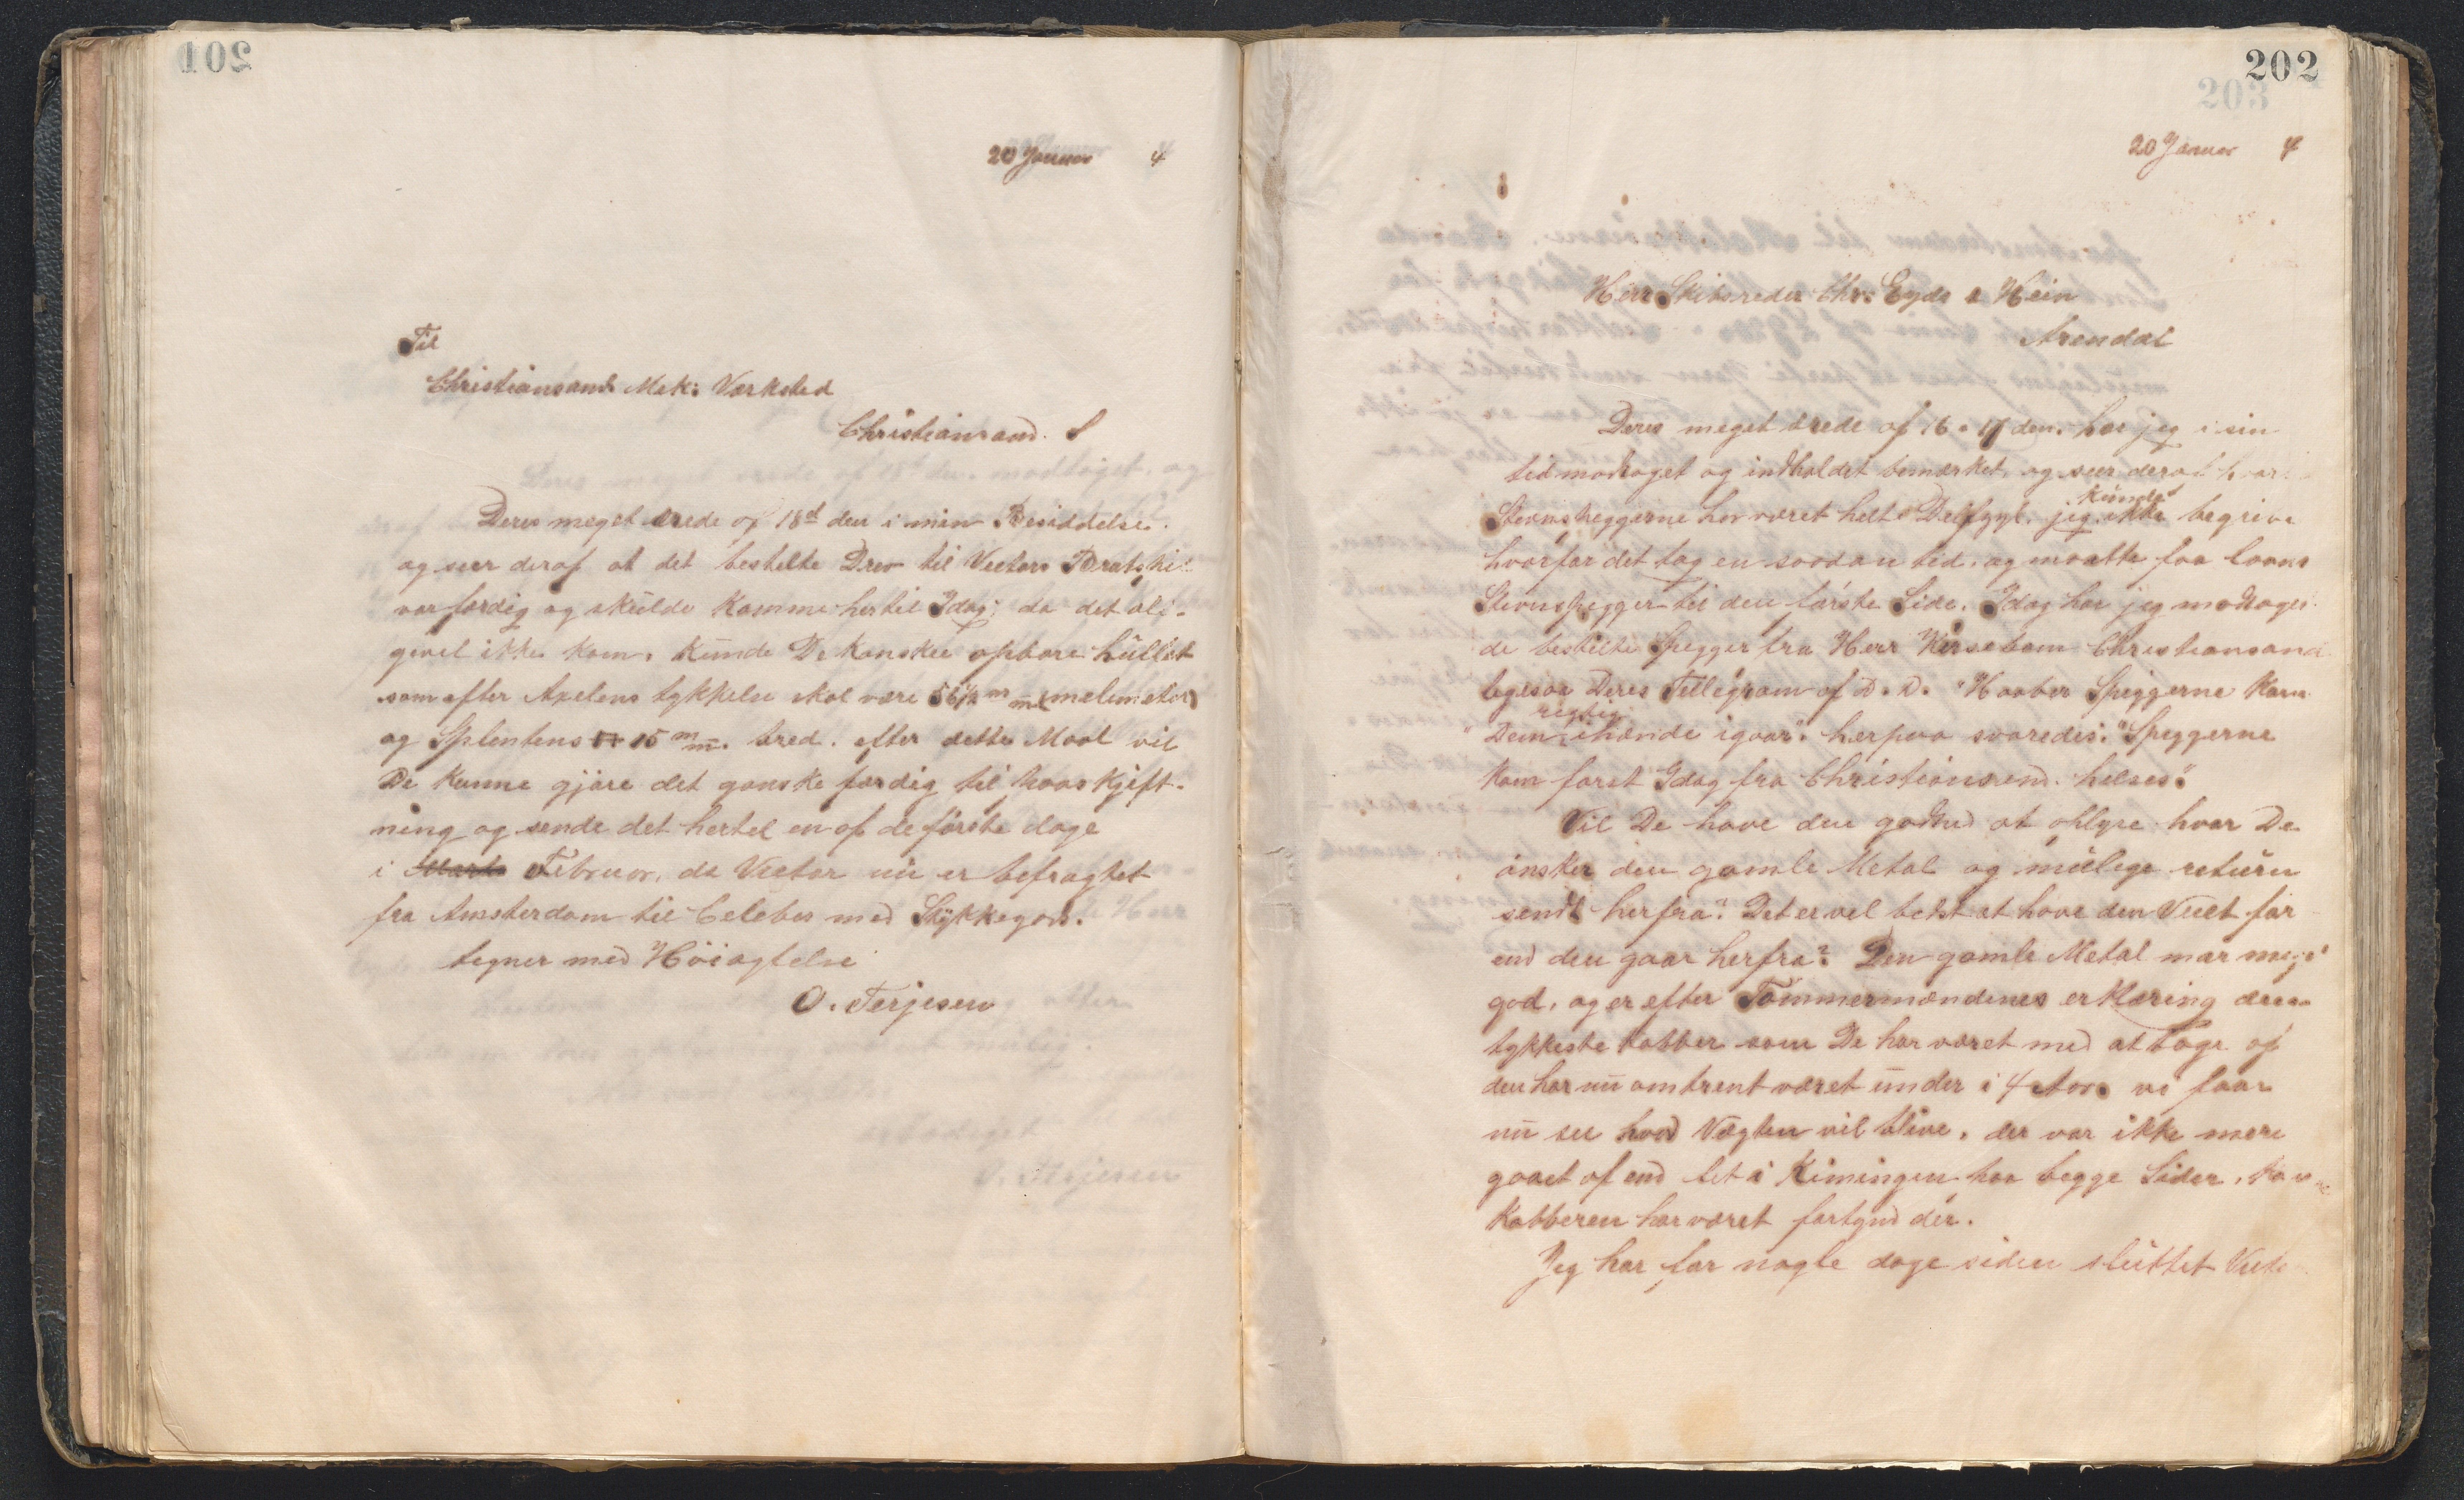 20 Januar 4
Til
Christiansands Mek: Værksted
Christiansand. S
Deres meget ærede af 18d den i min Besiddelse.
og seer deraf at det bestelte Drev til Victors Bratspil
var færdig og skulde komme hertil Idag; da det ali-
gevel ikke kom. Kunde De kanskee opbore hullet
som efter Axelens tykkelse skal være 56½ m/m (melimeter)
og Splintens 15 m/m. bred. efter dette Maal vil
De kunne gjøre det ganske færdig til paaskjift-
ning og sende det hertil en af de første dage
i Marts Februar, da Victor nu er befragtet
fra Amsterdam til Celebes med Stykkegods.
tegner med Høiagtelse
O. Terjesen
202
203
20 Januar 4
Herr Skibsreder Chr: Eyde & Hein
Arendal
Deres meget ærede af 16 & 17 den. har jeg i sin
tid modtaget og indholdet bemærket, og seer deraf hvor
Stevnspeggerne har været helt Delfzyl. jeg kunde ikke begribe
hvorfor det tog en saadan tid, og maatte faa laane
Stevnspegger til den første Side. Idag har jeg modtaget
de bestelte Spegger fra Herr Kirsebom Christiansand
legesaa Deres Tellegram af D. D. "Haaber Speggerne kom
"Dem rigtig ihænde igaar". herpaa svaredes: "Speggerne
kom først Idag fra Christiansand. hilses"
Vil De have den godhed at oplyse hvor De
ønsker den gamle Metal og mulige return
sendt herfra? Det er vel bedst at have den Veiet før
end den gaar herfra? Den gamle Metal var meget
god, og er efter Tømmermændenes erklæring den
tykkeste kobber som De har været med at tage af
den har nu omtrent været under i 4 Aar. vi faar
nu see hvad Vægten vil blive. der var ikke mere
gaaet af end let i Kimingen paa begge Sider,
Kobberen har været fortynd der.
Jeg har for nogle dage siden sluttet